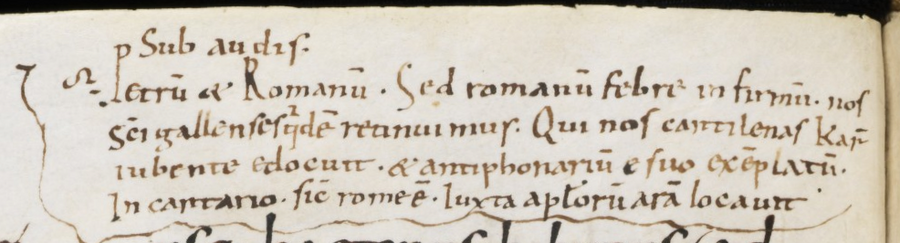 p Sub audis.
Petrū & Romanū. Sed romanū febre infirmū. nos
sc̄i gallenses qdē retinuimus. Qui nos cantilenas kar̄
iubente edocuit. & antiphonariū e suo exēplatū.
In cantario. sic̄ romę ē. Iuxta aplorū arā locauit